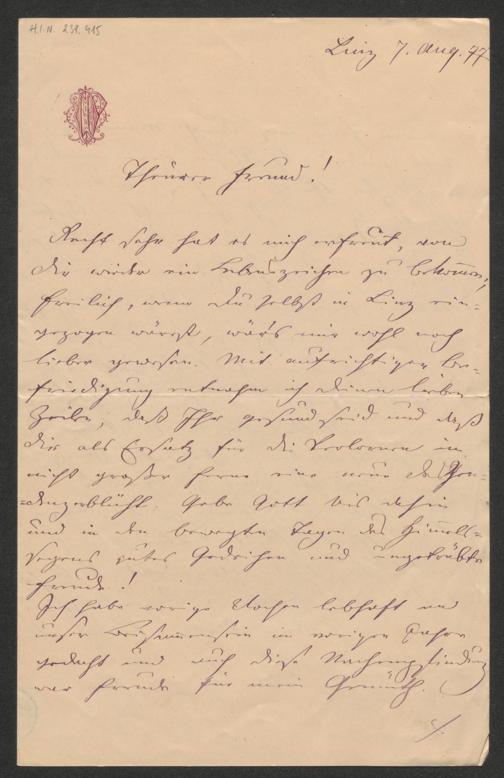 H.I.N. 239.415
Linz 7. Aug. 77
Theurer Freund!
Recht sehr hat es mich erfreut, von
Dir wieder ein Lebenszeichen zu bekommen,
freilich, wenn Du selbst in Linz ein-
gezogen wärest, wär's mir wohl noch
lieber gewesen. Mit aufrichtiger Be-
friedigung entnahm ich Deinen lieben
Zeilen, daß Ihr gesund seid und daß
Dir als Ersatz für die Verlorenen in
nicht großer Ferne eine neue
erblüht. Gebe Gott bis dahin
und in den bewegten Tagen des Himmels-
segens gutes Gedeihen und ungetrübte
Freude!
Ich habe vorige Wochen lebhaft an
unser Beisammensein im vorigen Jahre
gedacht und auch diese Nachempfindung
war Freude für mein Gemüth.